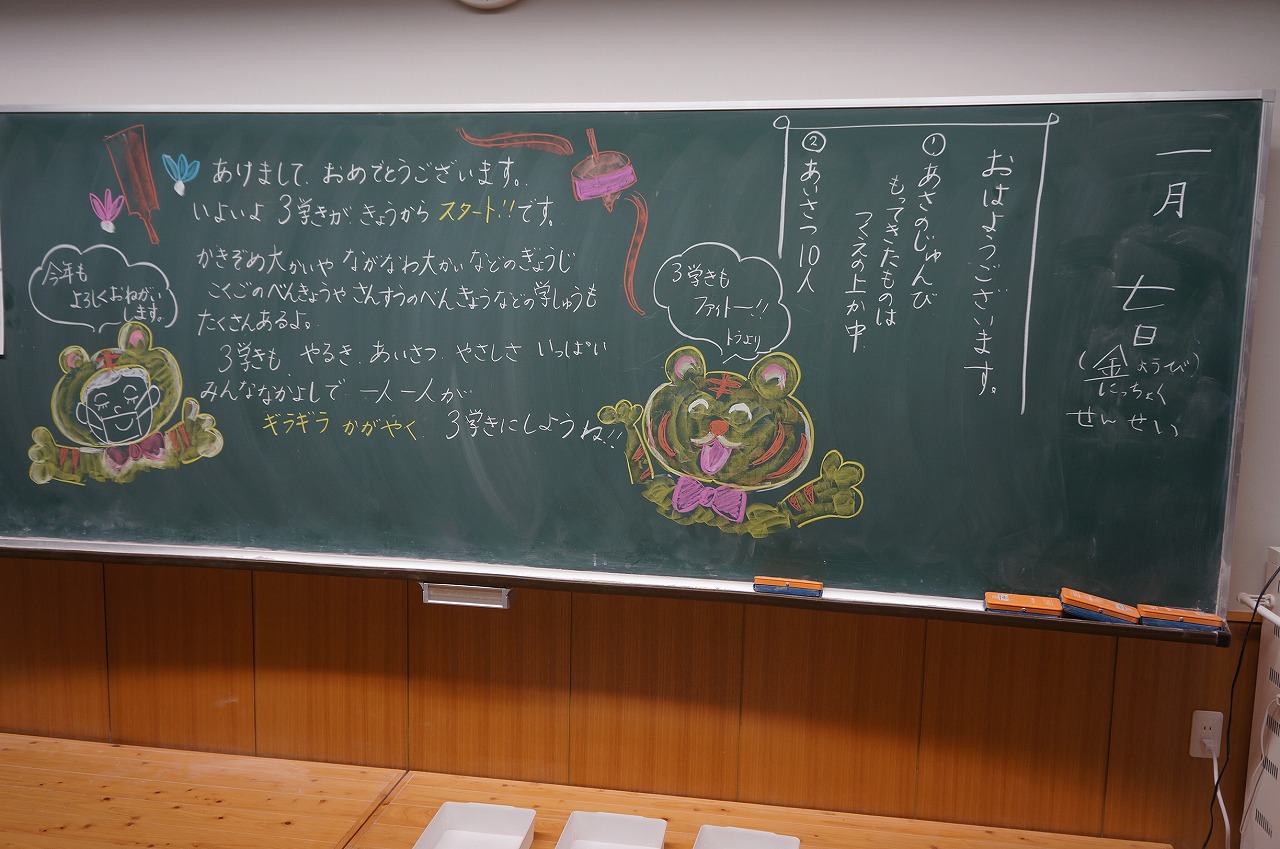 一月七日
(金ようび)
にっちょく
せんせい
おはようございます。
①あさのじゅんび
もってきたものは
つくえの上か中
②あいさつ10人
あけまして、おめでとうございます。
いよいよ 3学きが、きょうから スタート!!です。
かきぞめ大かいや ながなわ大かい などのぎょうじ
こくごのべんきょうや さんすうのべんきょうなどの学しゅうも
たくさんあるよ。
3学きも、やるき、あいさつ、やさしさ いっぱい
みんななかよしで 一人一人が
ギラギラ かがやく 3学きにしようね!!
今年も
よろしくおねがい
します。
3学きも
ファイトー!!
トラより